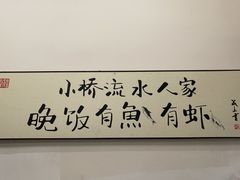 小桥流水人家
晚饭有魚有虾